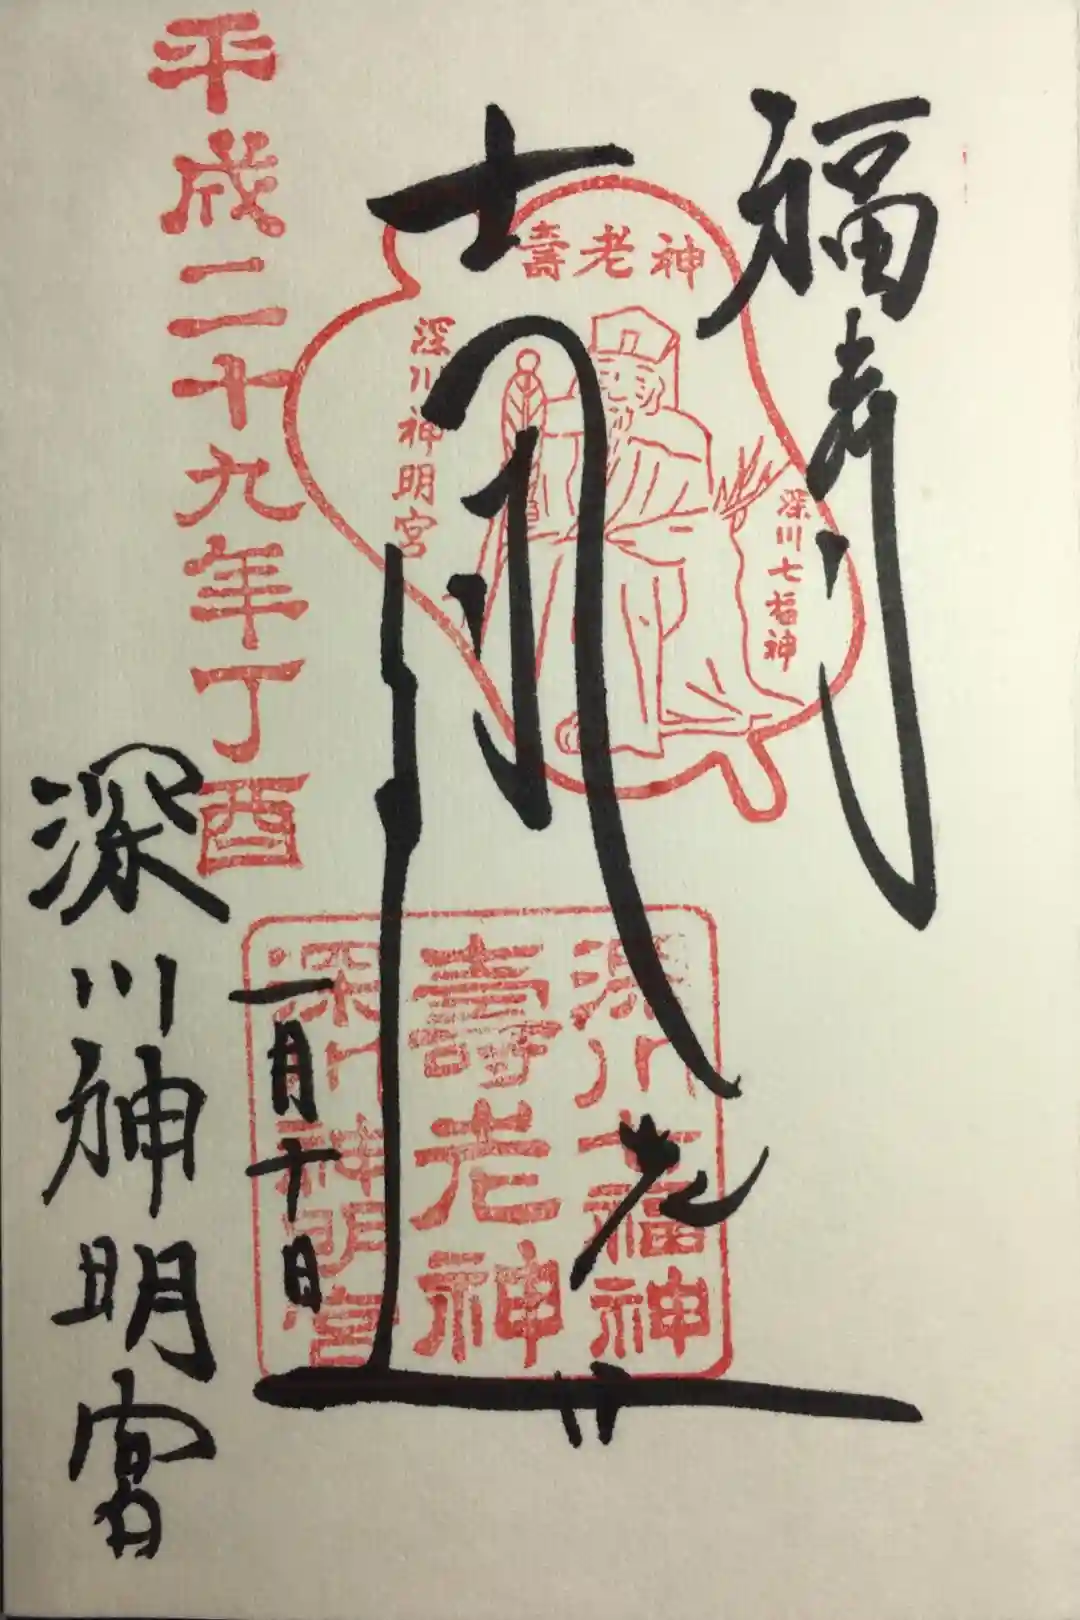 福寿
壽老神
深川七福神
深川神明宮
老
深川七福神
壽老神
深川神明宮
平成二十九年丁酉
一月十日
深川神明宮